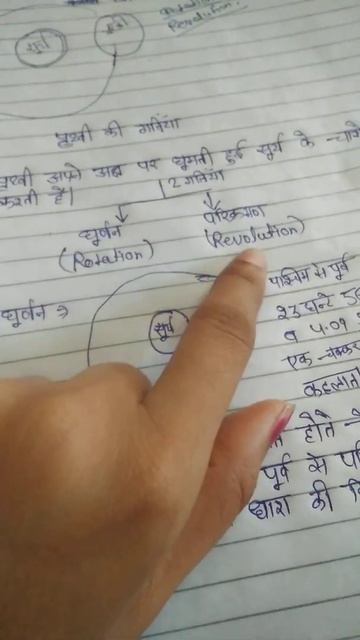 सूर्य
पृथ्वी
Revolution.
पृथ्वी की गतियाँ
पृथ्वी अपने अक्ष पर घूमती हुई सूर्य के चारो
करती है।
2 गतियाँ
घूर्णन
परिक्रमण
(Rotation)
(Revolution)
घूर्णन →
सूर्य
पश्चिम से पूर्व
23 घण्टे 56
व 4.09
एक चक्कर
कहलाता
होते
पूर्व से
धारा की